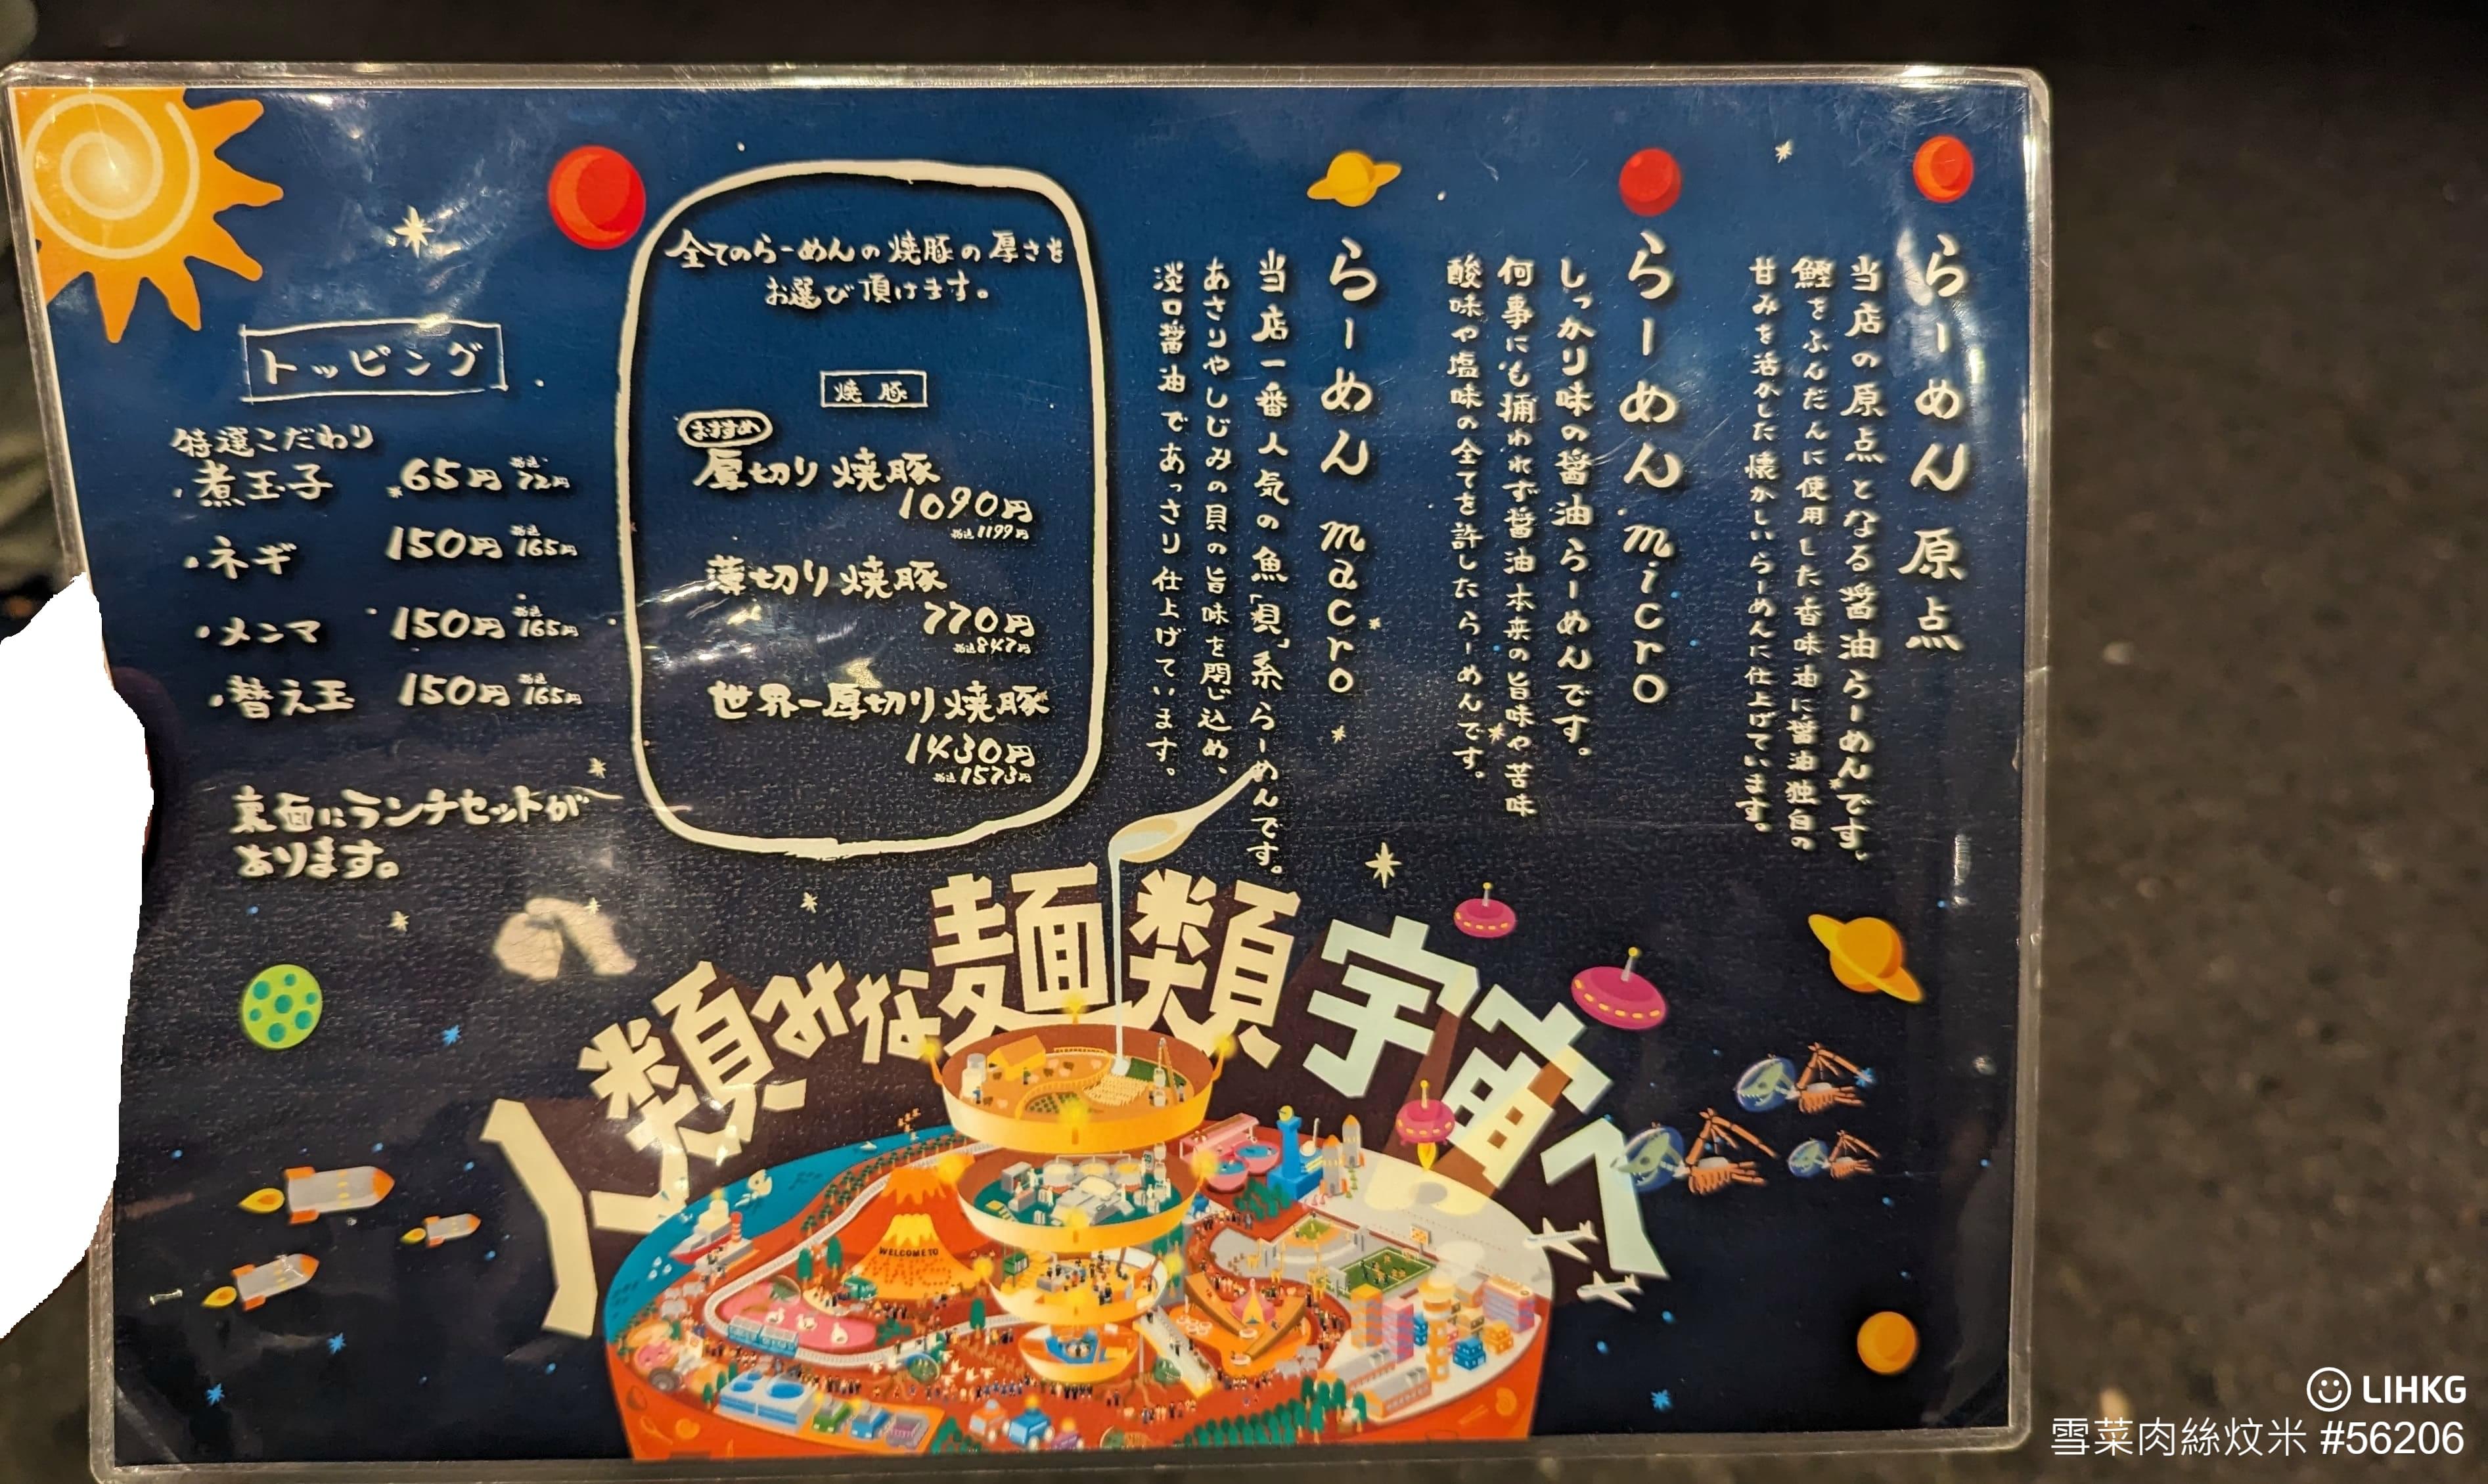 らーめん 原点
当店の原点となる醤油らーめんです。
鰹をふんだんに使用した香味油に醤油独自の
甘みを活かした懐かしいらーめんに仕上げています。
らーめん micro
しっかり味の醤油らーめんです。
何事にも捕われず醤油本来の旨味や苦味
酸味や塩味の全てを許したらーめんです。
らーめん macro
当店一番人気の魚「貝」系らーめんです。
あさりやしじみの貝の旨味を閉じ込め、
淡口醤油であっさり仕上げています。
全てのらーめんの焼豚の厚さを
お選び頂けます。
焼豚
おすすめ
厚切り焼豚
1090円
税込1199円
薄切り焼豚
770円
税込847円
世界一厚切り焼豚
1430円
税込1573円
トッピング
特選こだわり
・煮玉子 65円 税込72円
・ネギ 150円 税込165円
・メンマ 150円 税込165円
・替え玉 150円 税込165円
裏面にランチセットが
あります。
人類みな麺類宇宙へ
WELCOME TO
LIHKG
雪菜肉絲炆米 #56206